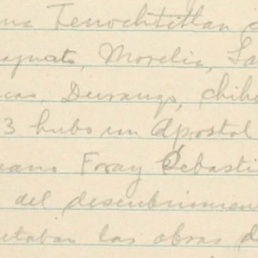 Tenochtitlan
Morelia,
cas, Durango, Chih
3 hubo un Apostol
Fray Sebasti
del descubrimien
las obras d